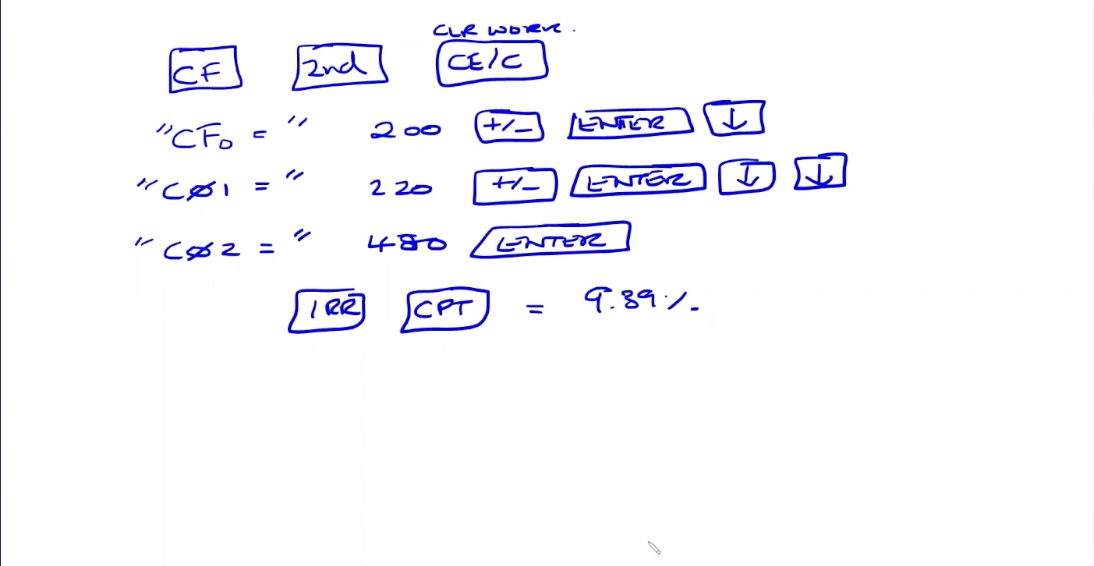 CLR WORK.
CF 2nd CE/C
"CF0 = " 200 +/- ENTER ↓
"C01 = " 220 +/- ENTER ↓ ↓
"C02 = " 480 ENTER
IRR CPT = 9.39%.